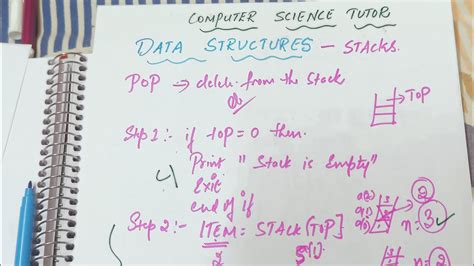 COMPUTER SCIENCE TUTOR
DATA STRUCTURES - STACKS.
POP → delete from the stack
TOP
Step 1:- if top = 0 then
Print "Stack is Empty"
Exit
end of if
Step 2:- ITEM = STACK[TOP]
n = 3
n = 2